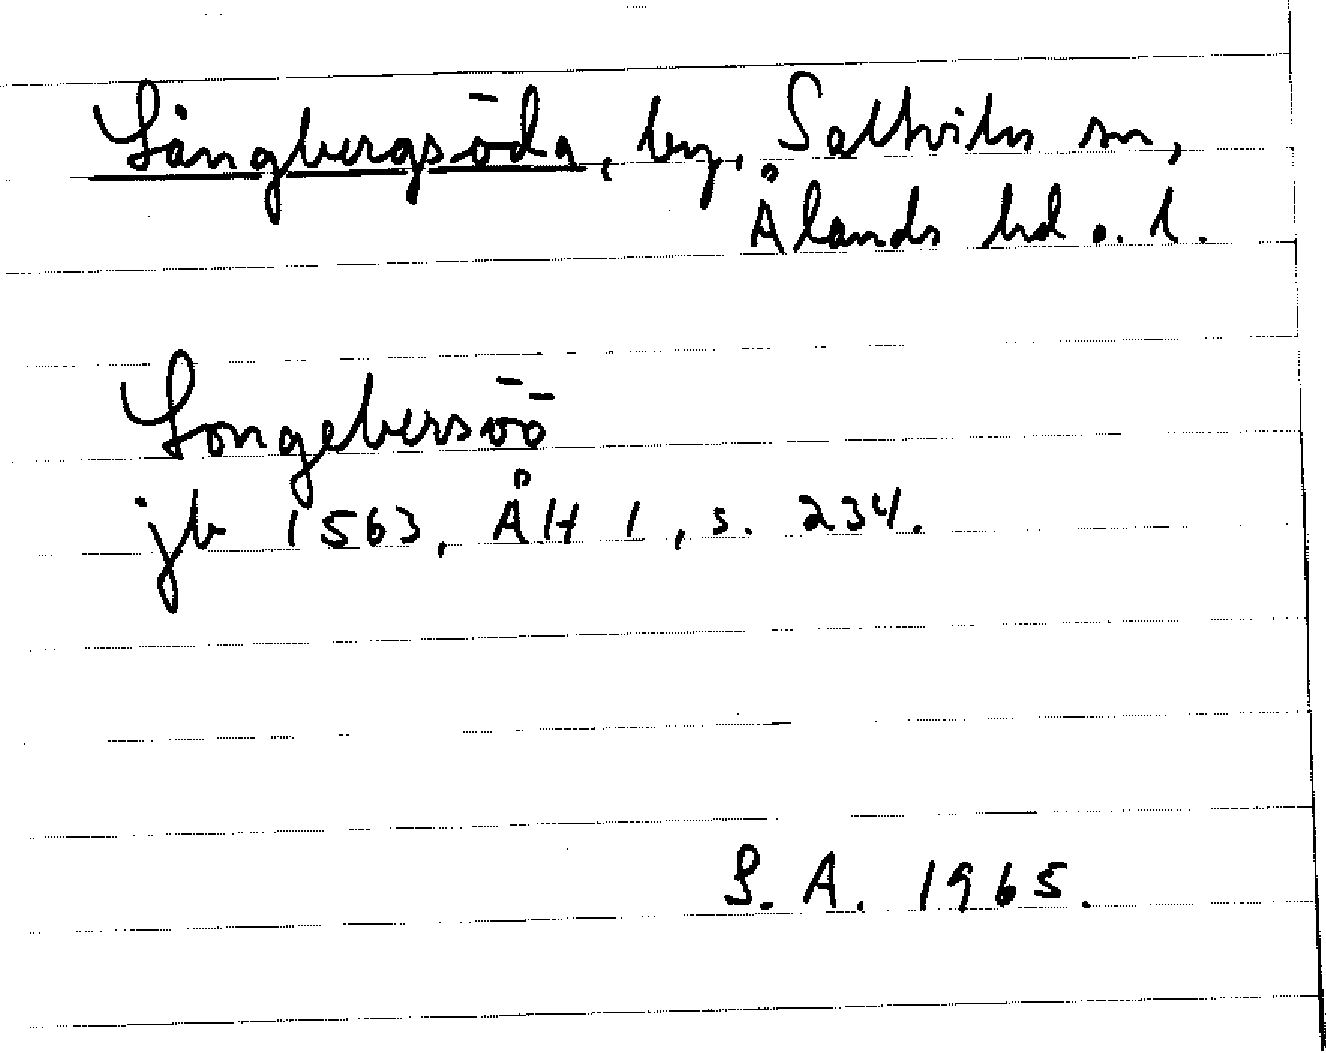 Långbergsöda, by, Saltviks sn,
Ålands hd o. l.
Longebersöö
jb 1563, ÅH 1, s. 234.
S. A. 1965.